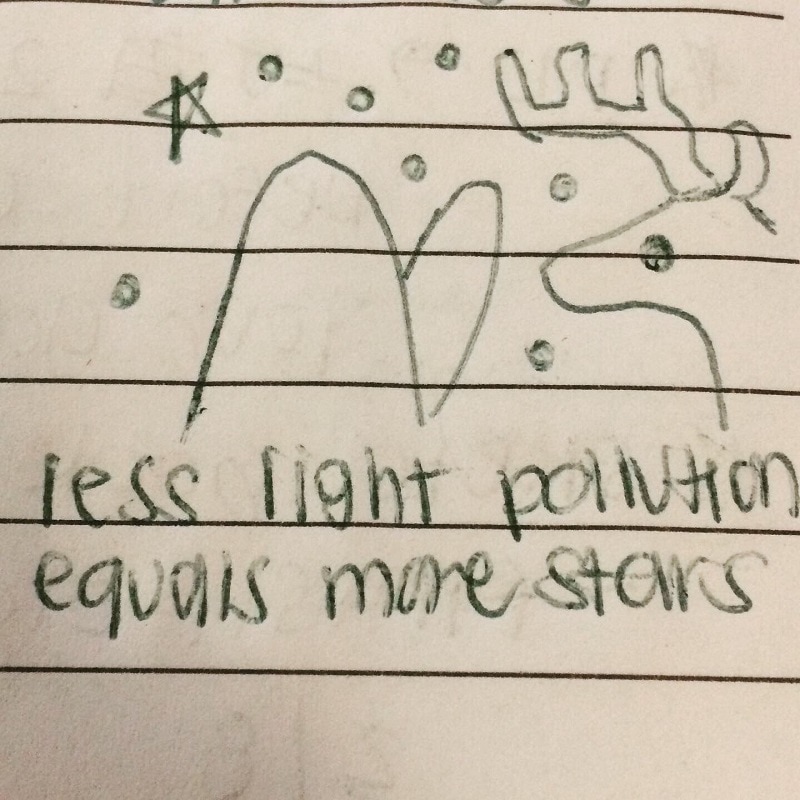 less light pollution
equals more stars